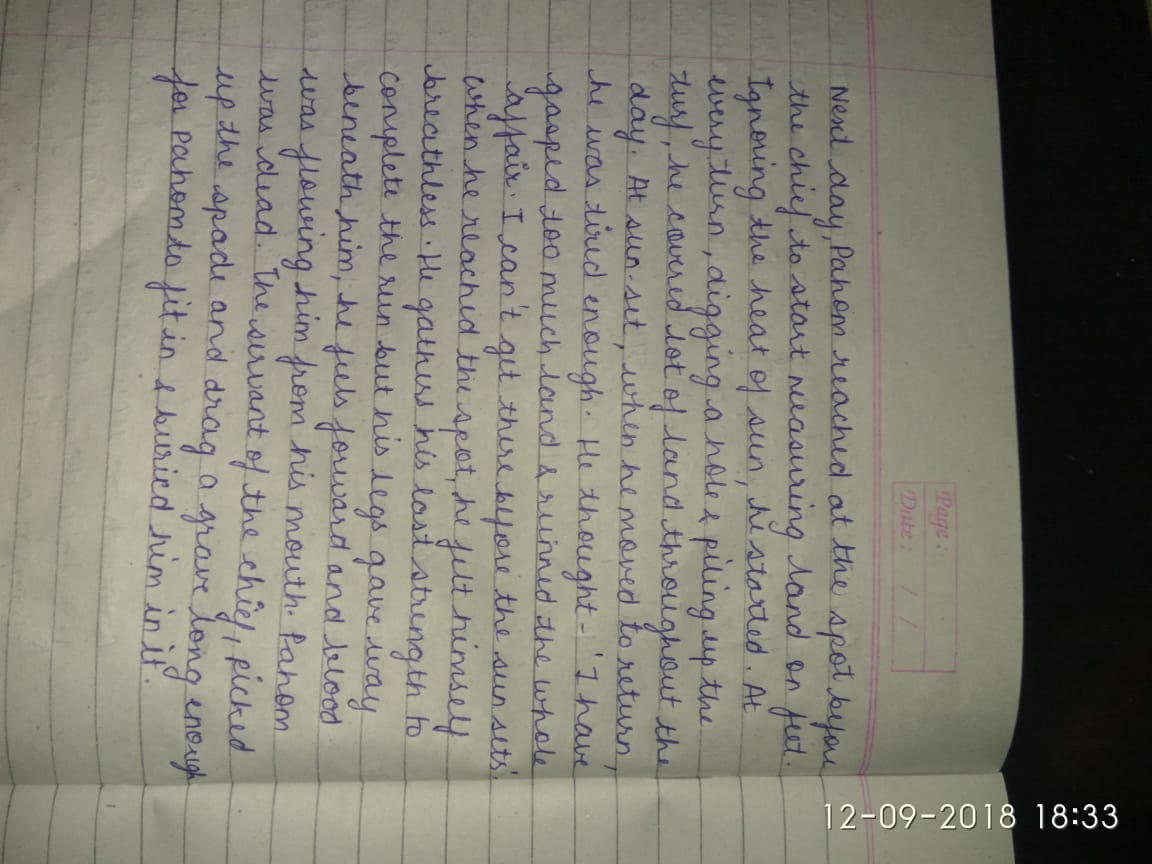 Page :
Date : / /
12-09-2018 18:33
Next day, Pahom reached at the spot before
the chief to start measuring land on feet.
Ignoring the heat of sun, he started. At
every turn, digging a hole & piling up the
turf, he covered lot of land throughout the
day. At sun-set, when he moved to return,
he was tired enough. He thought - 'I have
gasped too much land & ruinned the whole
affair. I can't get there before the sun sets'.
When he reached the spot, he felt himself
breathless. He gathers his last strength to
complete the run but his legs gave way
beneath him, he feels forward and blood
was flowing him from his mouth. Pahom
was dead. The servant of the chief, picked
up the spade and drag a grave long enough
for Pahom to fit in & buried him in it.